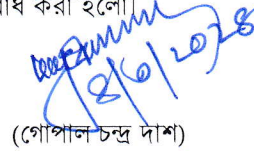 করা হলো।
8/6/2028
(গোপাল চন্দ্র দাশ)